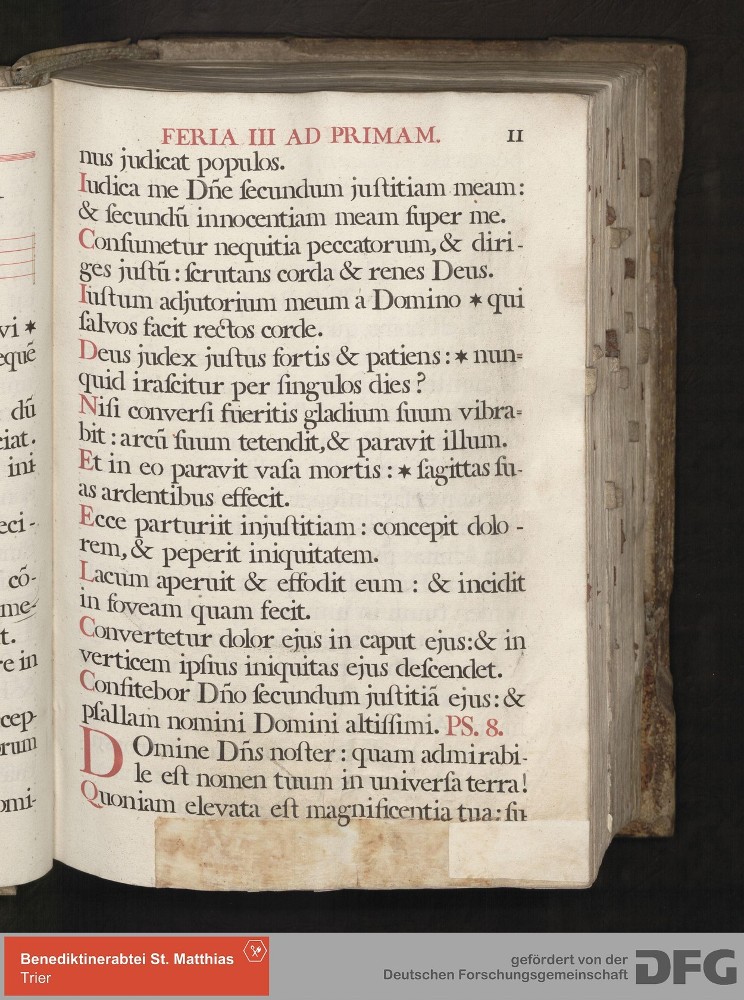 FERIA III AD PRIMAM. 11
nus judicat populos.
Iudica me Dñe ſecundum juſtitiam meam:
& ſecundũ innocentiam meam ſuper me.
Conſumetur nequitia peccatorum, & diri-
ges juſtũ: ſcrutans corda & renes Deus.
Iuſtum adjutorium meum à Domino * qui
ſalvos facit rectos corde.
Deus judex juſtus fortis & patiens: * nun=
quid iraſcitur per ſingulos dies?
Niſi converſi fueritis gladium ſuum vibra=
bit: arcũ ſuum tetendit, & paravit illum.
Et in eo paravit vaſa mortis: * ſagittas ſu-
as ardentibus effecit.
Ecce parturiit injuſtitiam: concepit dolo-
rem, & peperit iniquitatem.
Lacum aperuit & effodit eum: & incidit
in foveam quam fecit.
Convertetur dolor ejus in caput ejus: & in
verticem ipſius iniquitas ejus deſcendet.
Confitebor Dño ſecundum juſtitiã ejus: &
pſallam nomini Domini altiſſimi. PS. 8.
DOmine Dñs noſter: quam admirabi-
le eſt nomen tuum in univerſa terra!
Quoniam elevata eſt magnificentia tua: ſu-
vi *
equẽ
dũ
ciat.
ini
eci-
cõ-
me-
t.
re in
cep-
rum
omi-
Benediktinerabtei St. Matthias
Trier
gefördert von der
Deutschen Forschungsgemeinschaft
DFG